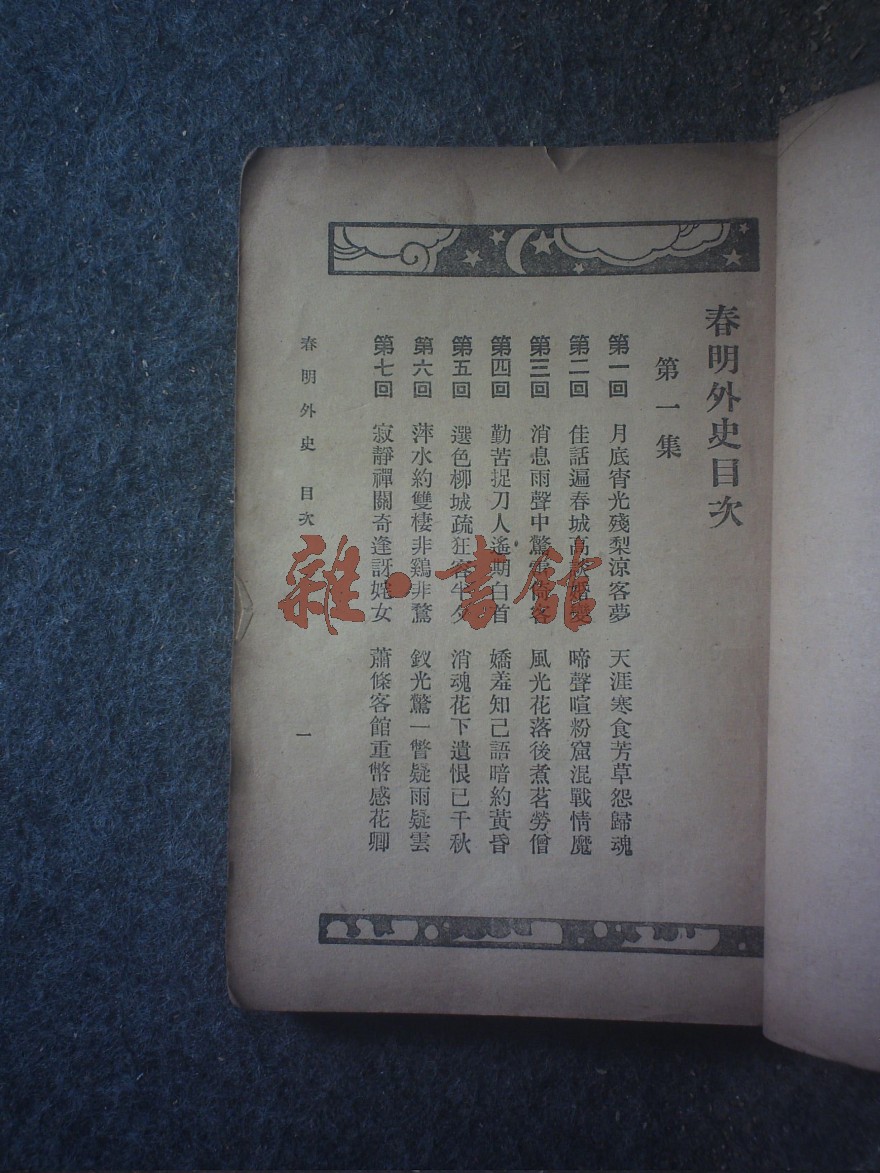 春明外史目次
第一集
第一回 月底宵光殘梨涼客夢 天涯寒食芳草怨歸魂
第二回 佳話遍春城高談婚變 啼聲喧粉窟混戰情魔
第三回 消息雨聲中驚雷倚客 風光花落後煮茗勞僧
第四回 勤苦捉刀人遙期白首 嬌羞知己語暗約黃昏
第五回 選色柳城疏狂客半夕 消魂花下遺恨已千秋
第六回 萍水約雙棲非鷄非鶩 釵光驚一瞥疑雨疑雲
第七回 寂靜禪關奇逢訝姹女 蕭條客館重幣感花卿
春明外史 目次
一
雜·書館